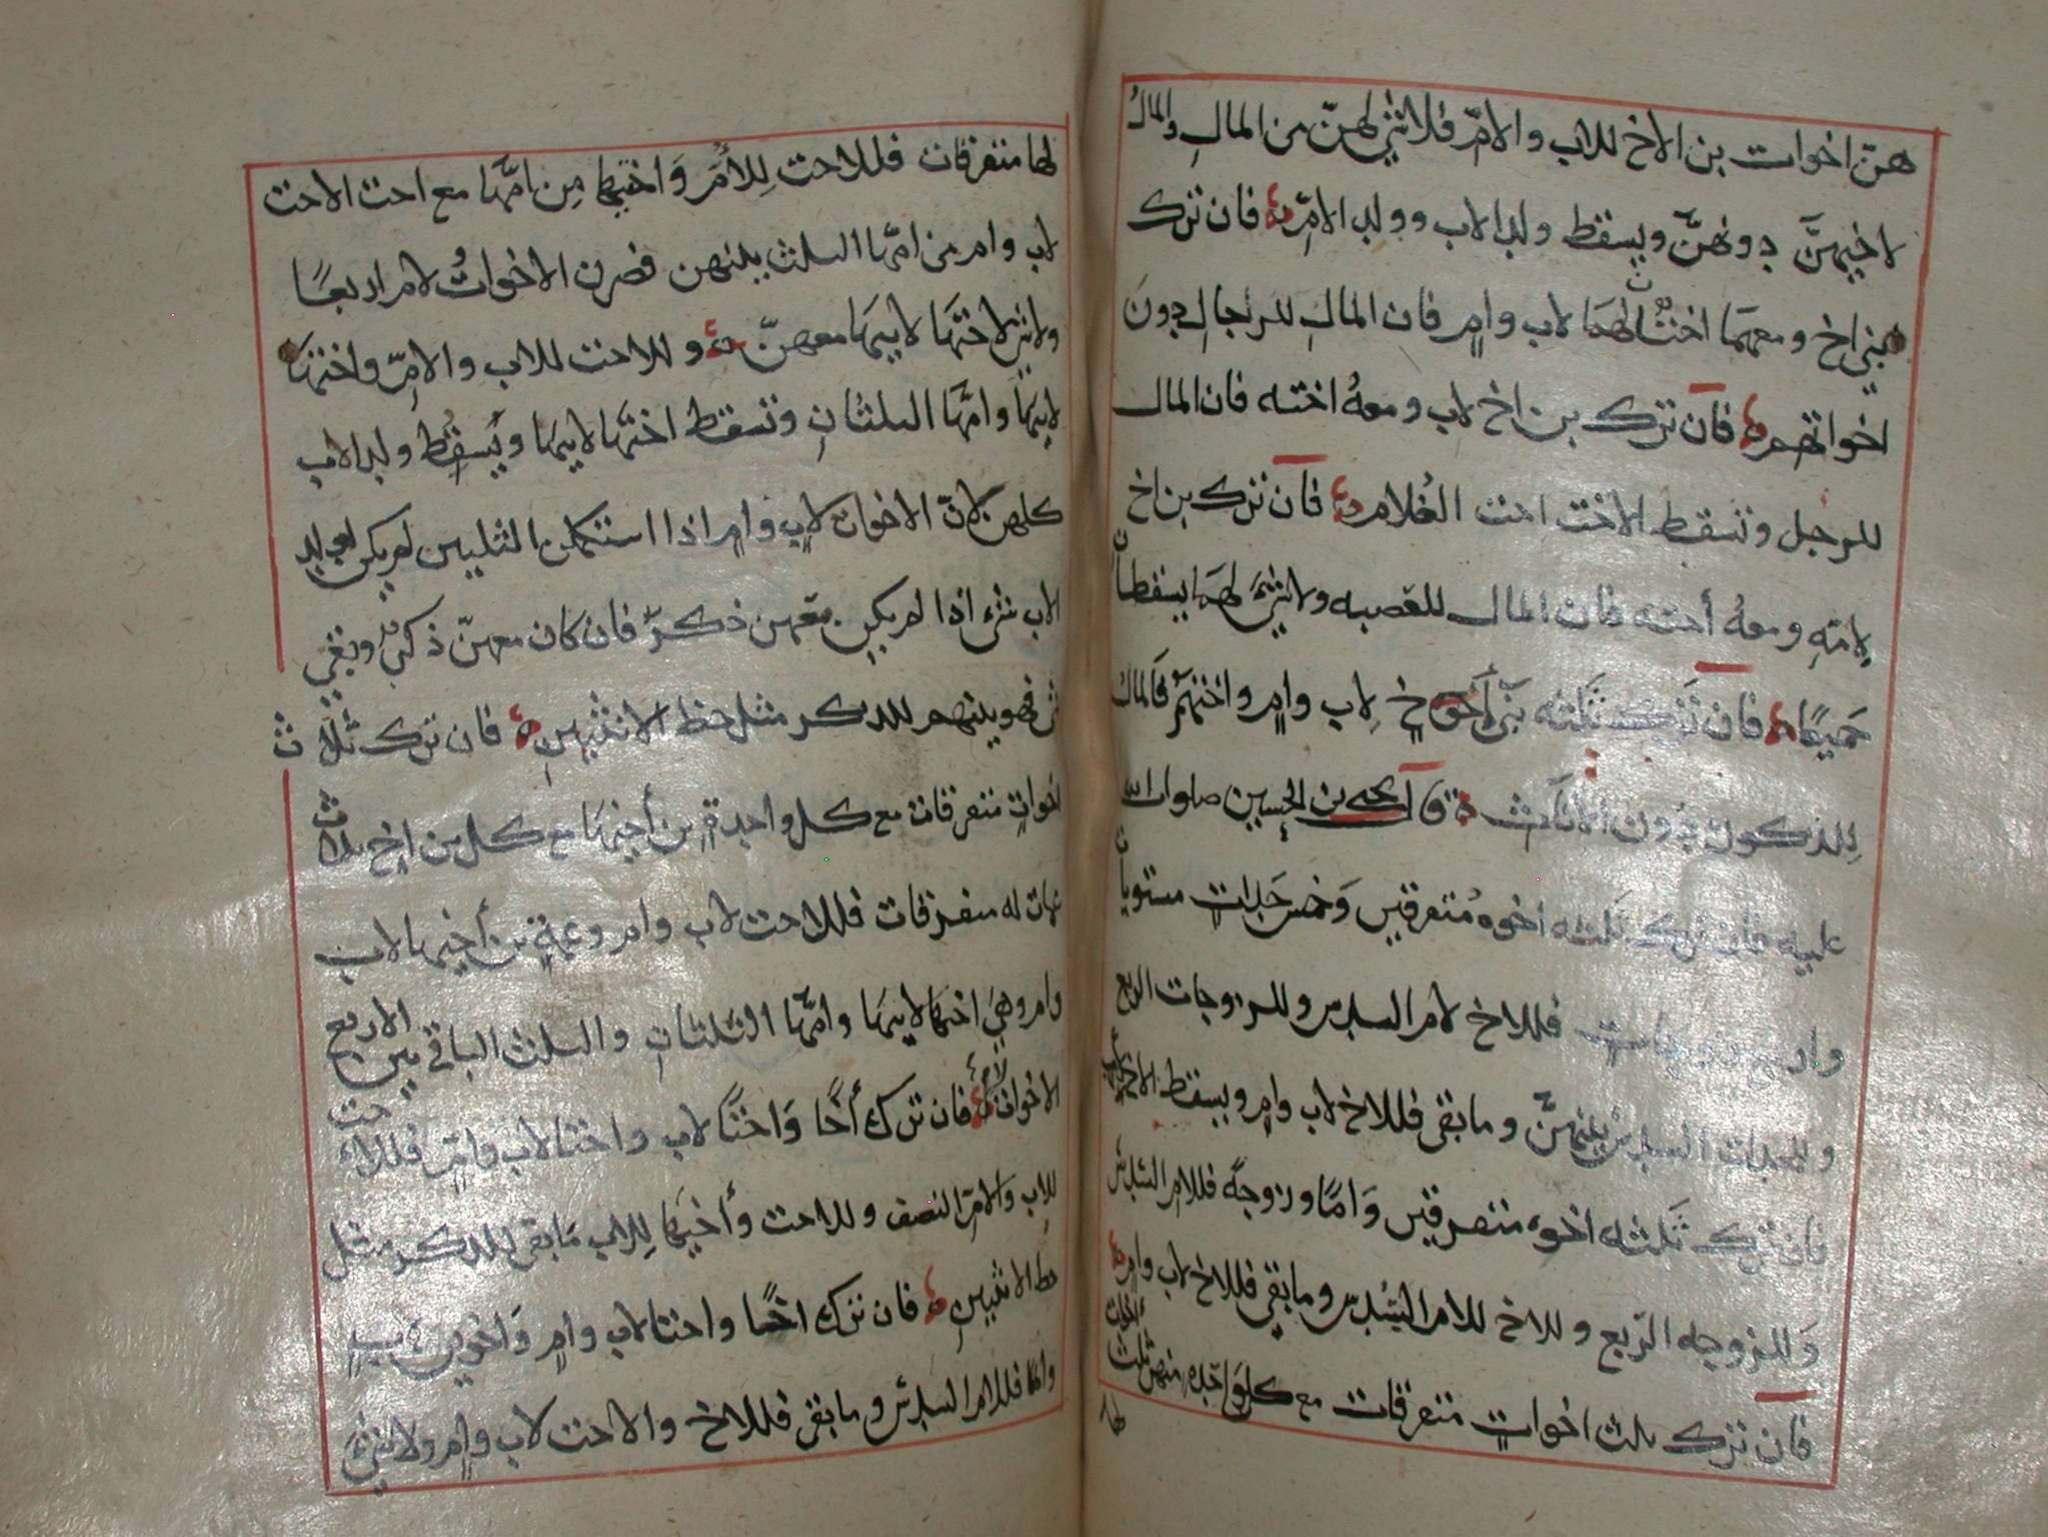 هنّ اخوات بن الاخ للاب والامّ فلا شي لهنّ من المال والمال
لاخيهنّ دونهنّ ويسقط ولد الاب وولد الامّ فان ترك
بني اخ ومعهما اختٌ لهما لاب وامٍ فان المالِ للرجال دونَ
اخواتهم فان ترك بن اخ لاب ومعهُ اخته فان المال
للرجل وتسقط الاخت اخت الغُلام فان ترك بن اخ
لامّهِ ومعهُ أخته فان المال للعصبه ولا شيَ لهما يسقطان
جَميعًا فان تَرك ثلثه بَني أخ لِاب وامٍ واختهم فَالمال
لِلذكور دُون الاناث قال يحيى بن الحسين صلوات الله
عليه فان ترك ثلثه اخوه مُتفرقين وَخمس جَدات مستويات
واربع زوجات فللاخ لام السدس وللزوجات الربع
وللجدات السدس بينهنّ وما بقي فللاخ لاب وامٍ ويسقط الاخ لاب
فان ترك ثَلثه اخوه متفرقين وَامًا وزوجةً فللام السدس
وَللزوجه الرّبع وللاخ للام السُدس وما بقي فللاخ لاب وامٍ
فان ترك ثلث اخواتٍ متفرقات مع كل واحده منهن ثلث اخوات
لها
لها متفرقات فللاخت لِلأُم وَاختها مِن امّها مع اخت الاخت
لاب وام من امّها الثلث بينهن فصرن الاخواتُ لام اربعًا
ولا شي لاختها لابيها معهنّ وللاخت للاب والامّ واختها
لابيها وامّها الثلثان وتسقط اختها لابيها ويَسقُط ولد الاب
كلهن لانّ الاخوات لابٍ وامٍ اذا استكملن الثلثين لم يكن لولد
الاب شيء اذا لم يكن معهن ذكرٌ فان كان معهنّ ذكرٌ وبقي
شي فهو بينهم للذكر مثل حظ الانثيين فان ترك ثلاث
اخواتٍ متفرقات مع كل واحدةٍ بن أخيها مع كل بن اخٍ ثلاث
عمات له متفرقات فللاخت لاب وام وعمةٍ بن أخيها لاب
وام وهي اختها لابيها وامّها الثلثان والثلث الباقي بين الاربع
الاخوات لامٍ فان ترك أخًا وَاختًا لاب واختا لاب وامٍّ فللاخت
للاب والامّ النصف وللاخت وأخيها لِلاب مَا بقي للذكر مثل
حظ الانثيين فان ترك اخًا واختا لاب وامٍ وَاخوين لابٍ
وامًا فللام السدس وما بقي فللاخ والاخت لاب وامٍ ولا شيَ